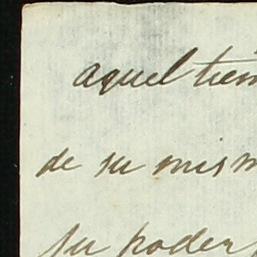 aquel tiem
de su mism
su poder